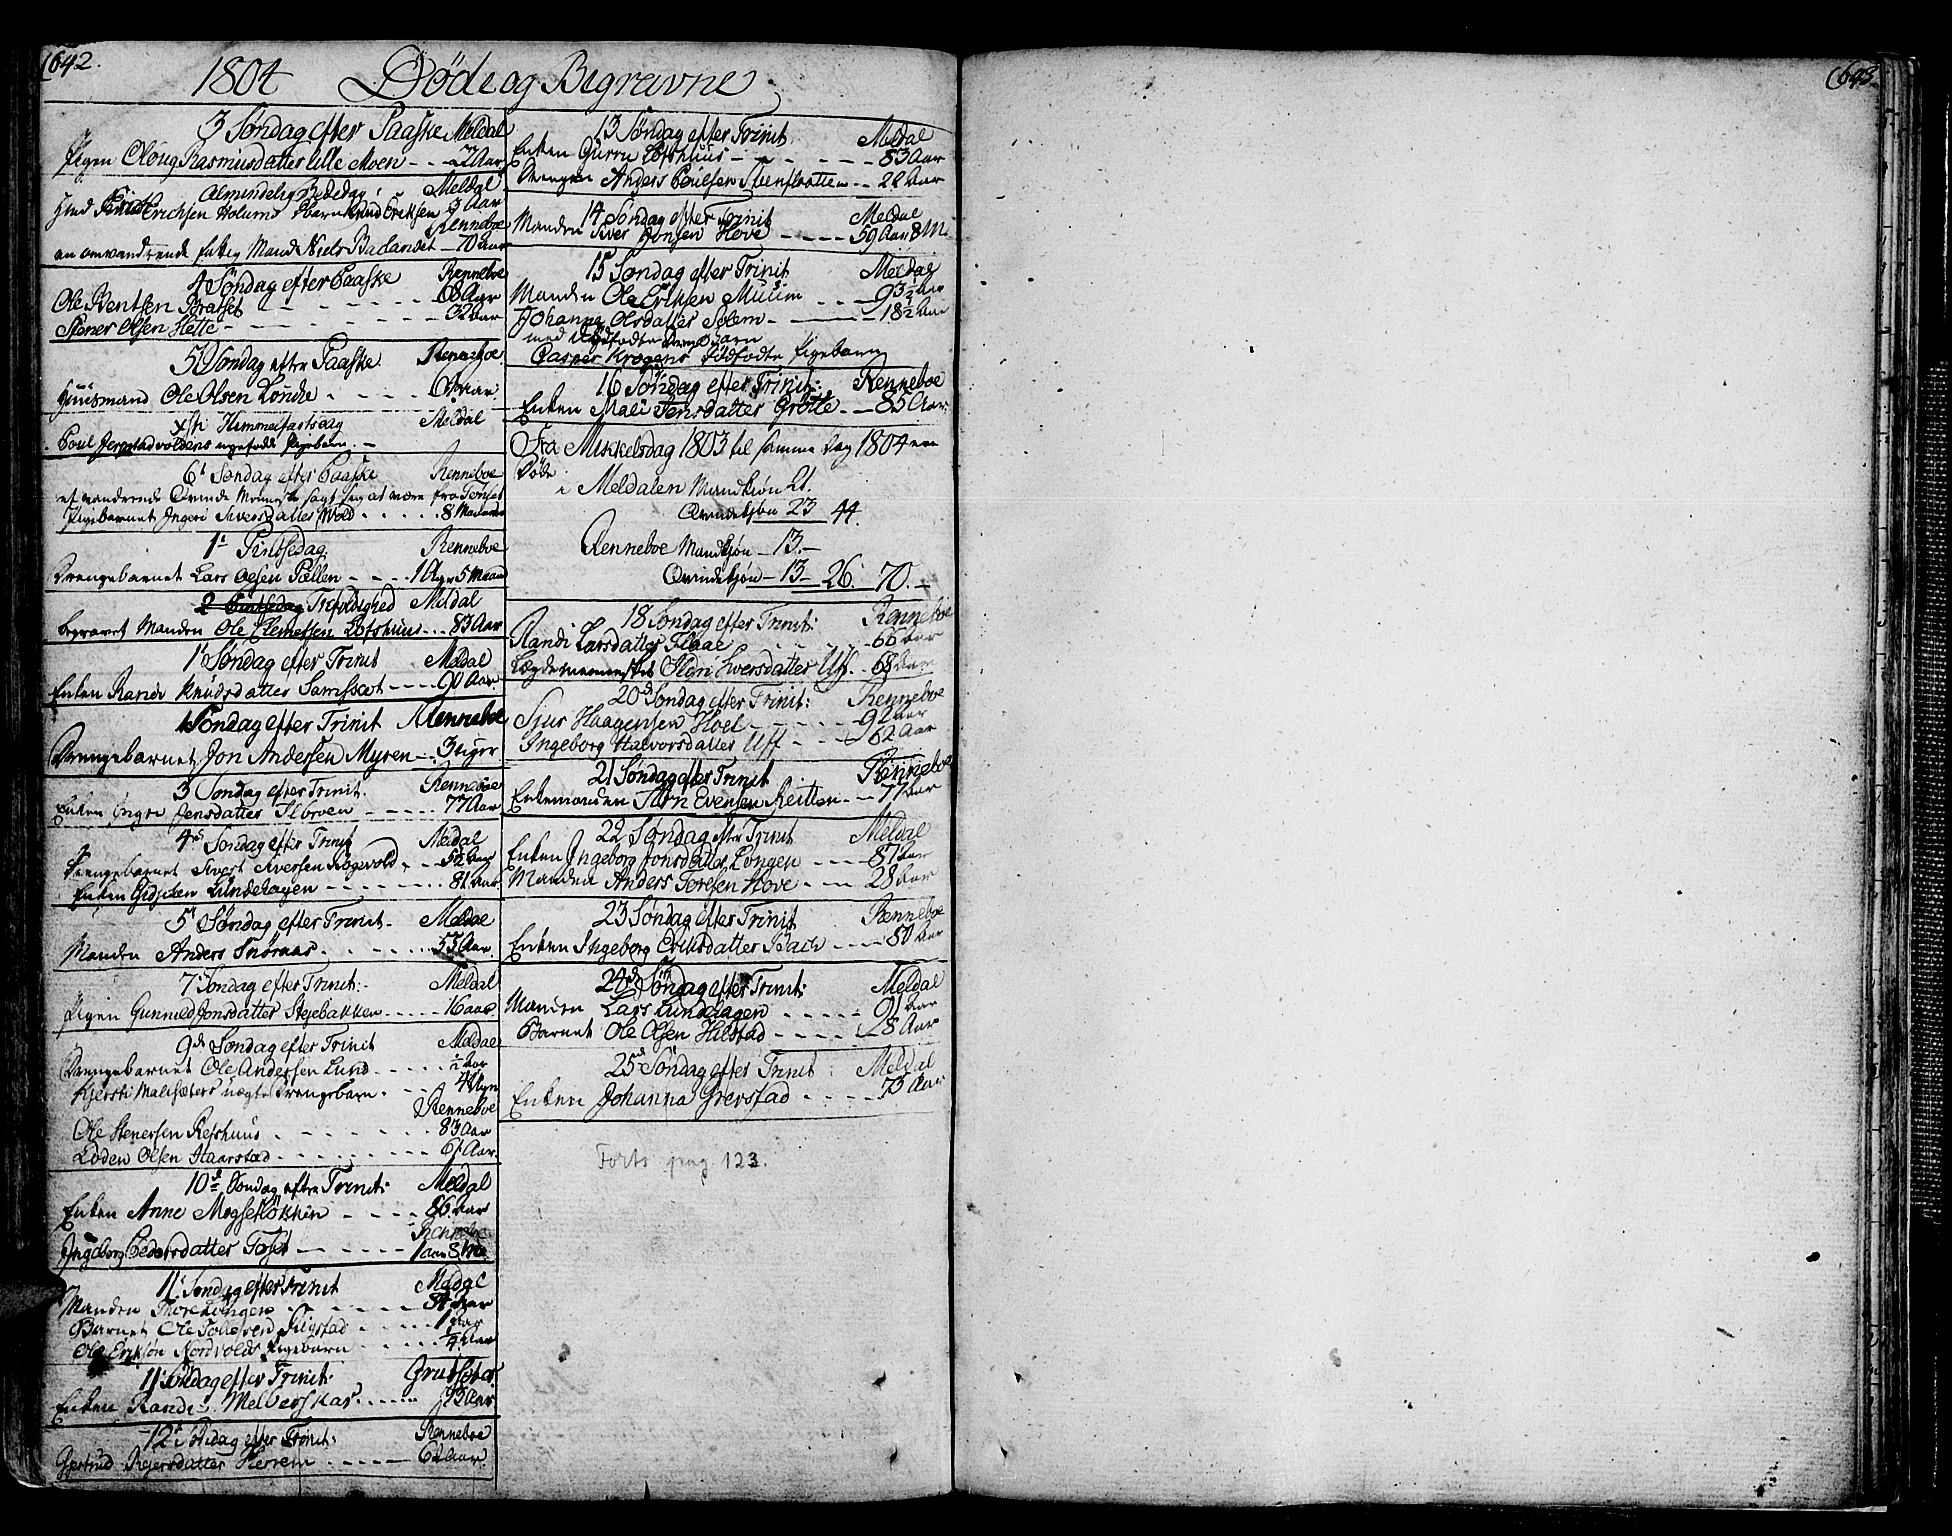 642.
1804 Døde og Begravne
3 Søndag efter Paaske Meldal
Pigen Oloug Rasmusdatter Lille Moen - - Aar
Almindelig Bededag Meldal
Erichsen Holums Barn Knud Eriksen 3 Aar
Renneboe
en omvandrende fattig Mand Niels - 70 Aar
4 Søndag efter Paaske Renneboe
Ole Bentsen Brattset - - - 68 Aar
Stener Olsen Hette - - - 32 Aar
5 Søndag efter Paaske Renneboe
Huusmand Ole Olsen Lunde - - - Aar
Christi Himmelfartsdag Meldal
Poul Jerpstadvoldens Pigebarn. -
6t Søndag efter Paaske Renneboe
et vandrende Qvinde Menneske sagt sig at være fra Tønset
Pigebarnet Ingeri Siversdatter Wold - - - 8 Maaneder
1t Pintsedag Renneboe
Drengebarnet Lars Olsen Pællen - - - 1 Aar 5 Maan
2 Pintsedag Trefoldighed Meldal
begravet Manden Ole Clemetsen Lofshuus - - - 83 Aar
1t Søndag efter Trinit Meldal
Enken Randi Knudsdatter - - - 90 Aar
1 Søndag efter Trinit Renneboe
Drengebarnet Jon Andersen Myren - - 3 Uger
3 Søndag efter Trinit. Renneboe
Enken Ingri Jensdatter Ilbroen - - - 77 Aar
4de Søndag efter Trinit Meldal
Drengebarnet Sivert Siversen Rogevold - Aar
Enken Lundehagen - - - 81 Aar
5t Søndag efter Trinit - Meldal
Manden Anders Snöraas. - - - 53 Aar.
7 Søndag efter Trinit:- Meldal
Pigen Gunnild Jonsdatter Stejebakken - - - 16 Aar
9de Søndag efter Trinit Meldal
Drengebarnet Ole Andersen Lund - - - ½ Aar
Kjersti uægte Drengebarn. - - 4 Ugr
Renneboe
Ole Stenersen Refshuus - - - 83 Aar
Loden Olsen Haarstad - - - 61 Aar.
10de Søndag efter Trinit: Meldal
Enken Anne - - - 86 Aar
Renneboe
Ingeborg Pedersdatter - - - 1 aar 8 M
11 Søndag efter Trinit Meldal
Manden Thore Longen - - - 84 Aar
Barnet Ole - - - 1 Aar
Ole Eriksön Nordvolds Pigebarn - - - ¼ Aar
11 Søndag efter Trinit:
Enken Randi Melberskar - - - 73 Aar
12t Söndag efter Trinit: Renneboe
Gjertrud Rejersdatter Herrem - - - 62 Aar.
13 Søndag efter Trinit Meldal
Enken Gurru Lofshuus - - - 83 Aar
Drengen Anders Poulsen Steenslætten - - 22 Aar
14 Søndag efter Trinit Meldal
Manden Siver Jonsen Hove - - - 59 Aar 8 M.
15 Søndag efter Trinit Meldal
Manden Ole Eriksen Muulim - - - Aar
Johanna Olsdatter Solem - - - 18½ Aar
med dødfødte Drengebarn
Casper Krogens dødfødte Pigebarn
16 Søndag efter Trinit: Renneboe
Enken Mali Jensdatter Grötte - - 85 Aar.
Fra Mikkelsdag 1803 til samme Dag 1804 ere
Døde
i Meldalen Mandkjön 21.
Qvindekjön 23 44.
Renneboe Mandkjön - 13. -
Qvindekjön - 13 - 26. 70. -
18 Søndag efter Trinit: Renneboe
Randi Larsdatter Flaae - - - 66 Aar
Lægdemennesket Ildri Iversdatter Uff. - 68 Aar
20de Søndag efter Trinit: Renneboe
Sjur Haagensen Hoel - - - 92 Aar
Ingeborg Halvorsdatter Uff - - - 62 Aar
21 Søndag efter Trinit Renneboe
Enkemanden Evensen Reitten - - 77 Aar
22 Søndag efter Trinit Meldal
Enken Ingeborg Jonsdatter Longen - - - 87 Aar
Manden Anders Toresen Hove - - - 28 Aar
23 Søndag efter Trinit Renneboe
Enken Ingeborg Eriksdatter Bach - - - 80 Aar
24de Søndag efter Trinit: Meldal
Manden Lars Lundehagen - - - 91 Aar
Barnet Ole Olsen Hilstad - - - 28 Aar
25de Søndag efter Trinit: Meldal
Enken Johanna Grevstad - - - 73 Aar
Forts pag. 123.
643